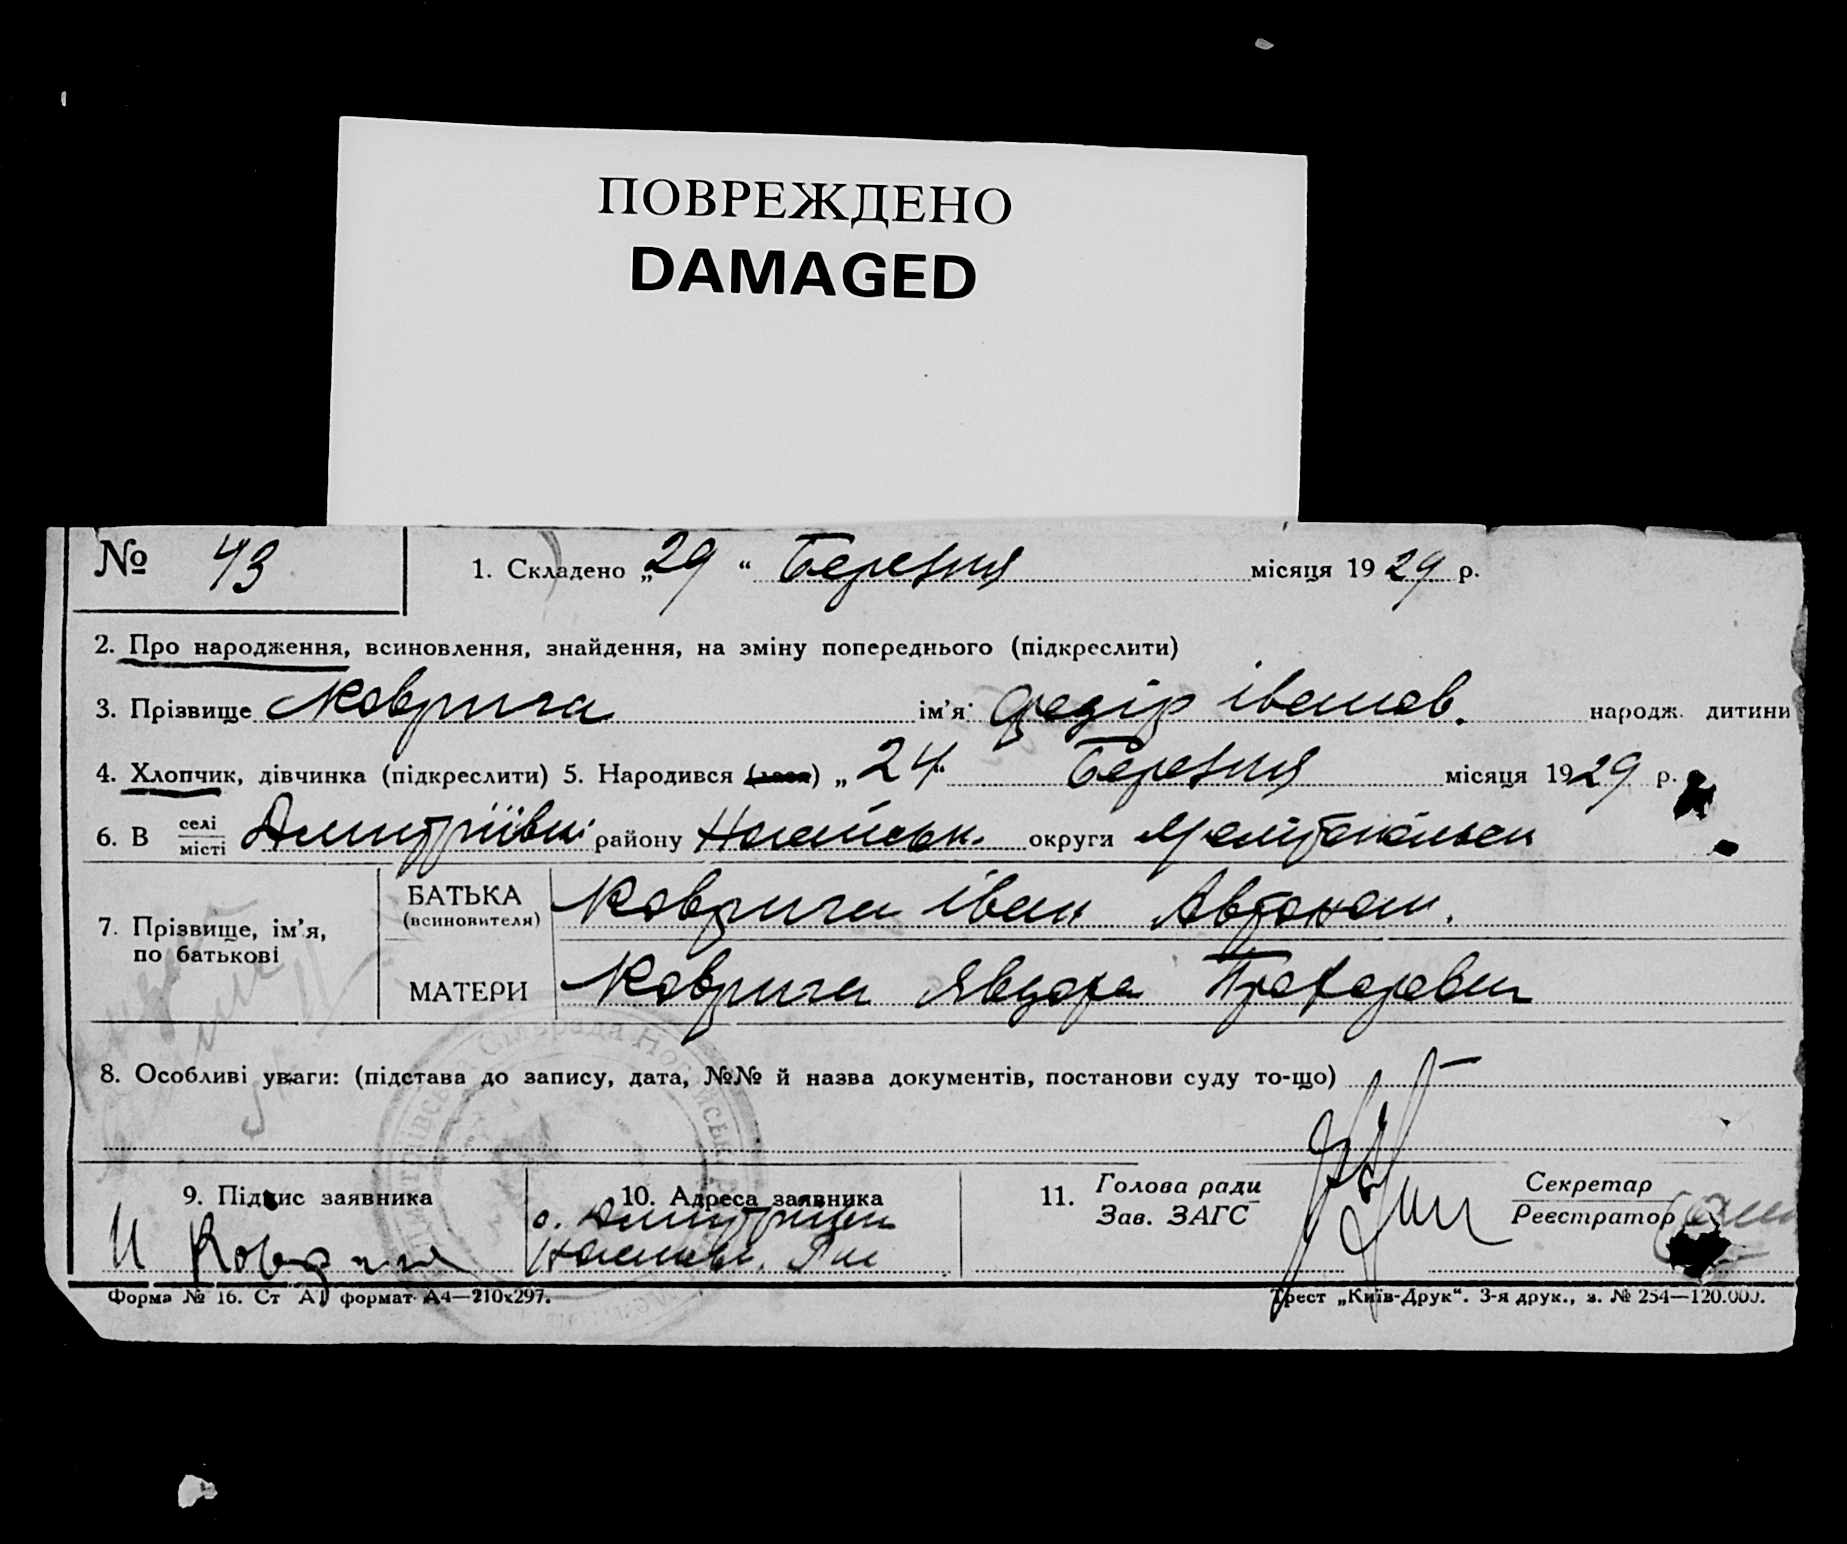 ПОВРЕЖДЕНО
DAMAGED
№ 43 1. Складено „29“ Березня місяця 1929 р.
2. Про народження, всиновлення, знайдення, на зміну попереднього (підкреслити)
3. Прізвище Коврига ім’я Федір Іванов. народж. дитини
4. Хлопчик, дівчинка (підкреслити) 5. Народився (лася) „24“ Березня місяця 1929 р.
6. В селі місті Дмитріївці району Ногайськ. округи Мелітопольськ
7. Прізвище, ім’я, по батькові
БАТЬКА (всиновителя) Коврига Іван Автоном.
МАТЕРИ Коврига Явдоха Прохоровна
8. Особливі уваги: (підстава до запису, дата, №№ й назва документів, постанови суду то-що)
9. Підпис заявника
И Коврига
10. Адреса заявника
с. Дмитрівки
Ногайськ. Рай
11. Голова ради
Зав. ЗАГС
Секретар
Реєстратор
Форма № 16. Ст А1 формат А4—210х297.
Трест „Київ-Друк“. 3-я друк., з. № 254—120.000.